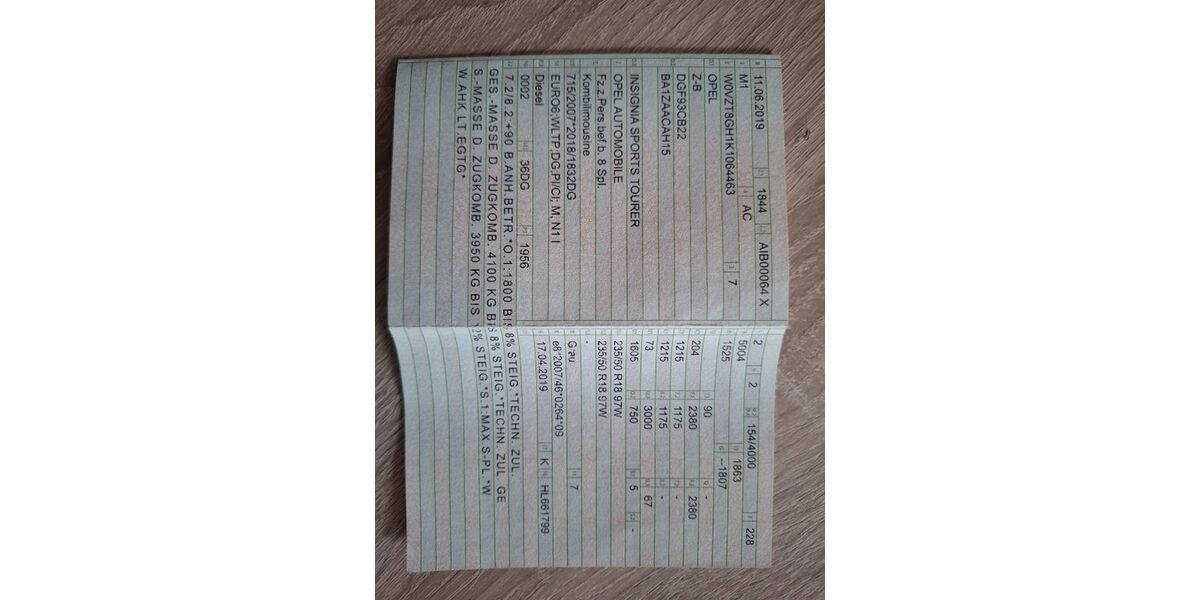 11.06.2019 1844 AIB00064 X
M1 AC
W0VZT8GH1K1064463 7
OPEL
Z-B
DGF93CB22
BA1ZAACAH15
INSIGNIA SPORTS TOURER
OPEL AUTOMOBILE
Fz.z.Pers.bef.b. 8 Spl.
Kombilimousine
715/2007*2018/1832DG
EURO6;WLTP;DG;PI/CI; M, N1 I
Diesel
0002 36DG 1956
2 2 154/4000 228
5004 1863
1525 --1807
90 -
204 2380 2380
1215 1175 -
1215 1175 -
73 3000 67
1605 750 5 -
235/50 R18 97W
235/50 R18 97W
-
Grau 7
e8*2007/46*0264*09
17.04.2019 K HL661799
7.2/8.2:+90 B.ANH.BETR.*O.1:1800 BIS 8% STEIG.*TECHN. ZUL.
GES.-MASSE D. ZUGKOMB. 4100 KG BIS 8% STEIG.*TECHN. ZUL. GE
S.-MASSE D. ZUGKOMB. 3950 KG BIS 12% STEIG.*S.1:MAX S-PL.*W
W.AHK LT.EGTG*